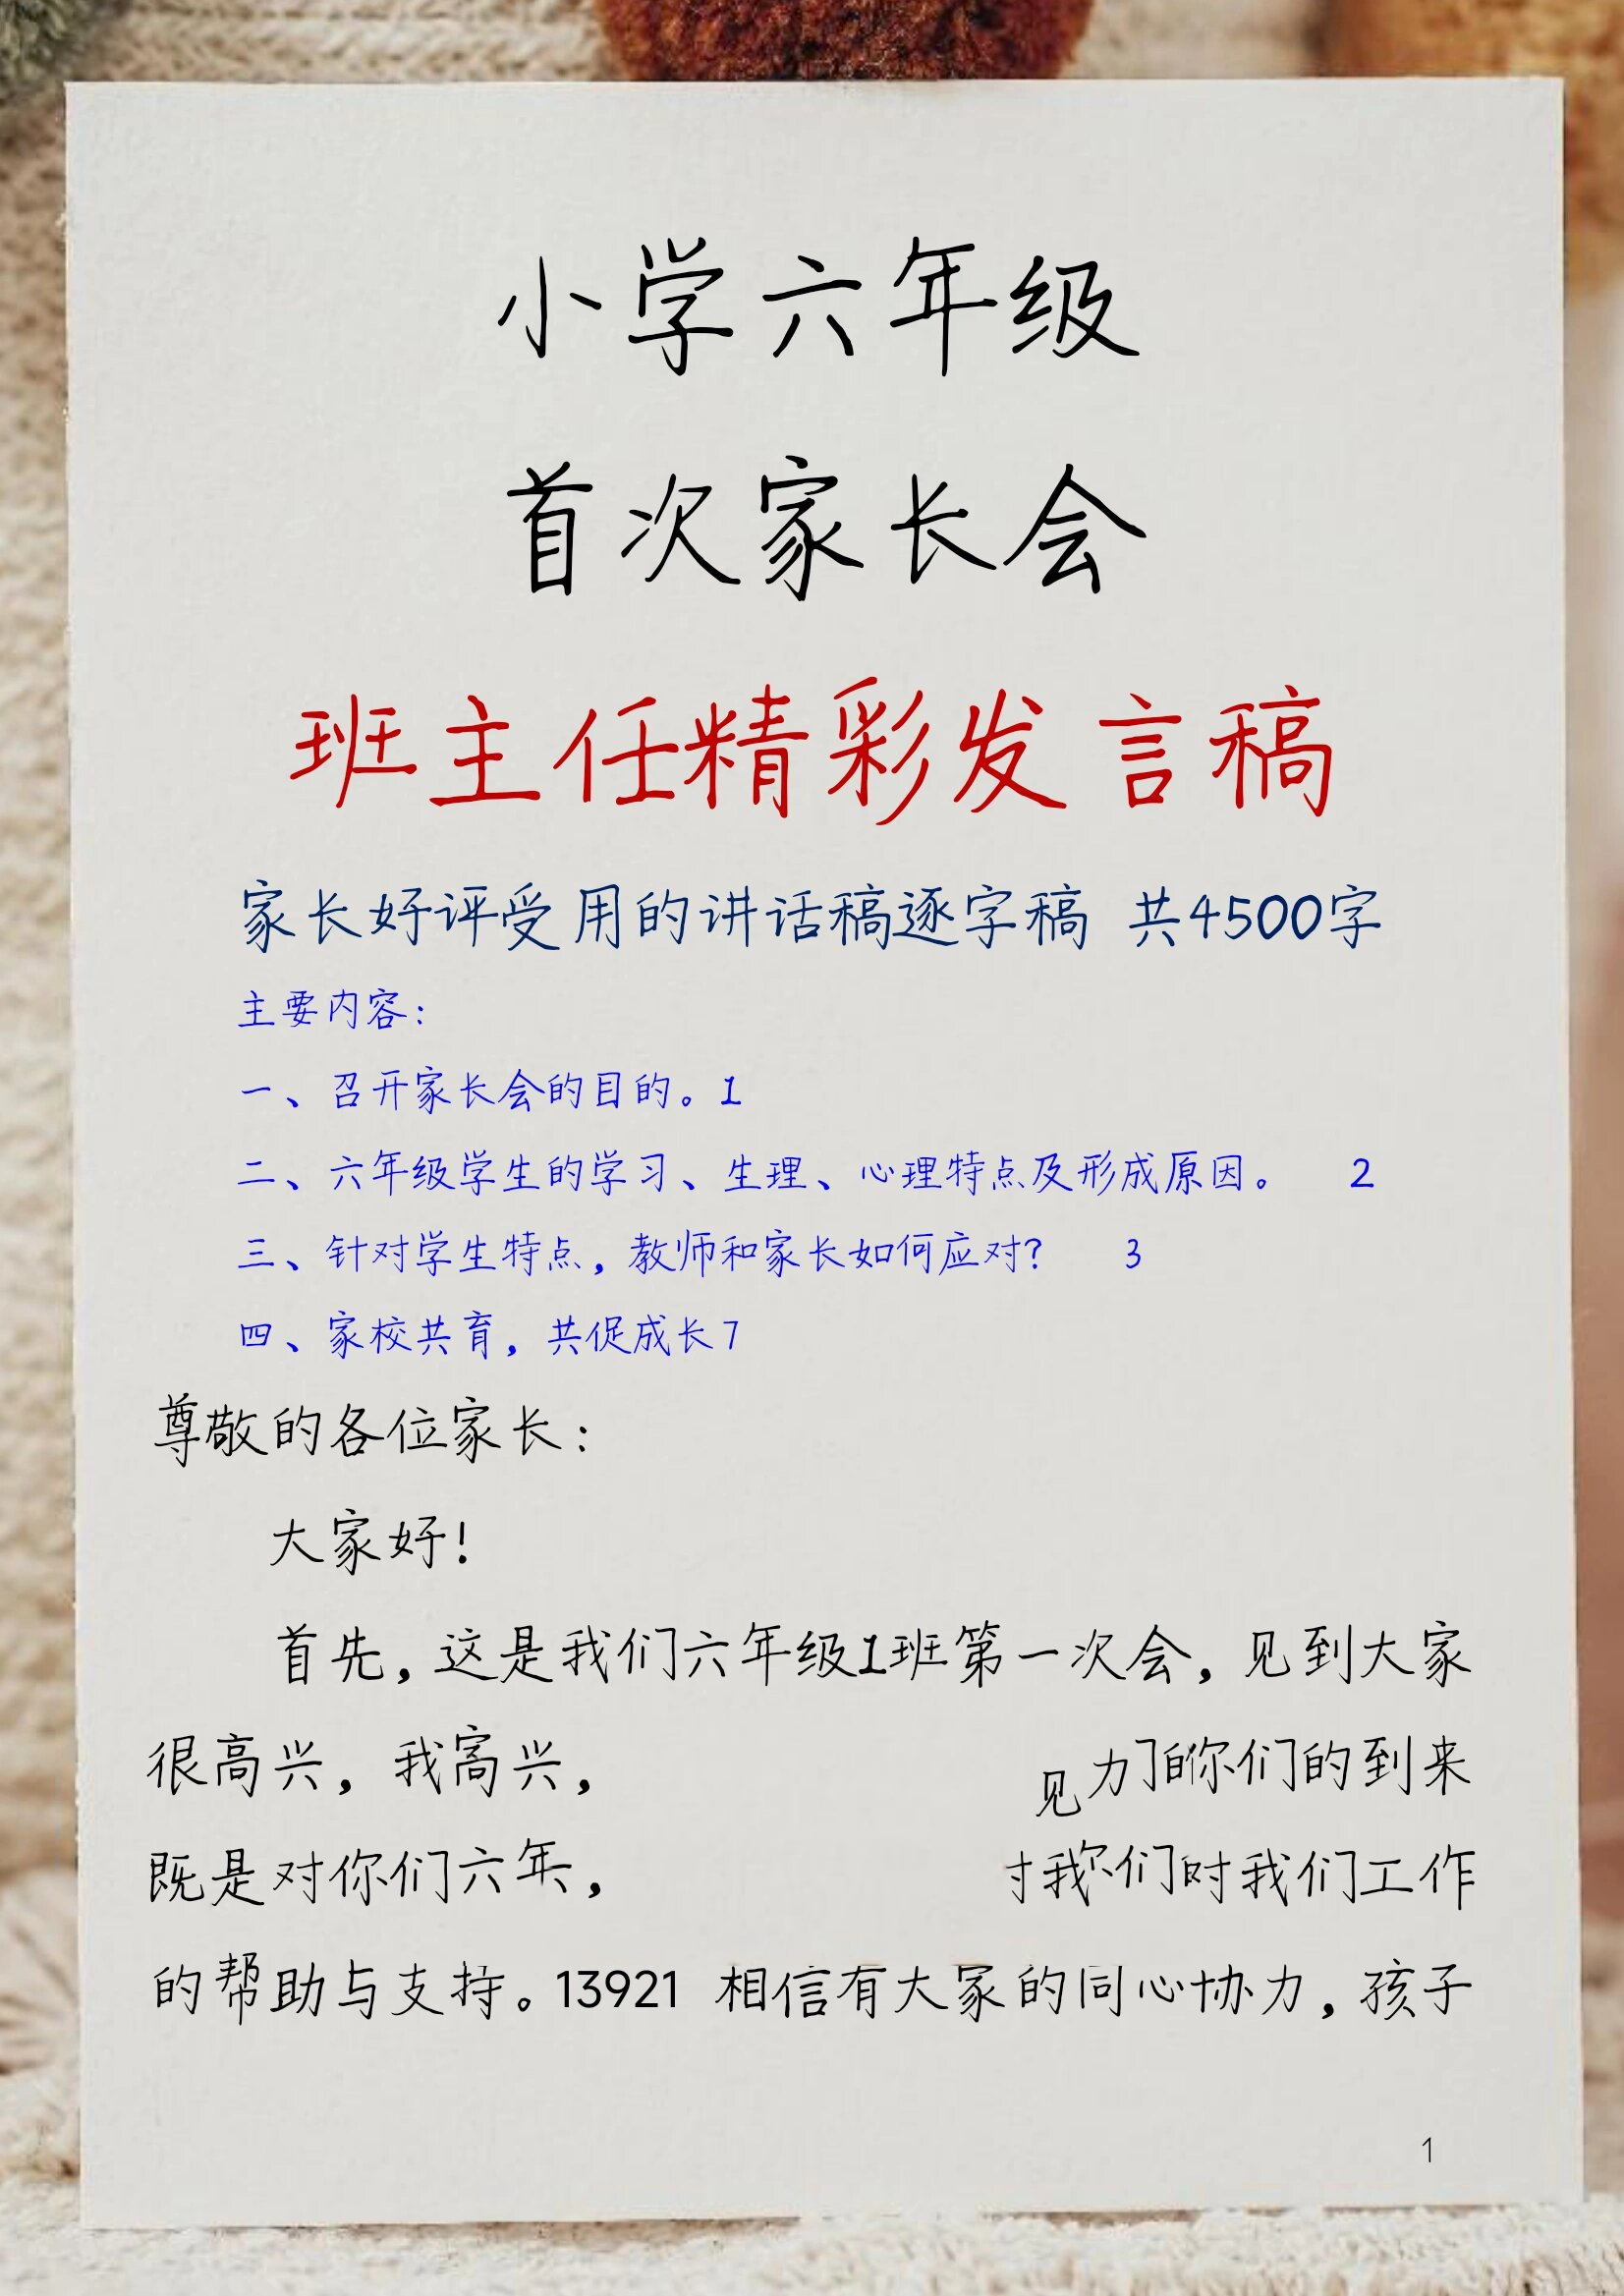 小学六年级
首次家长会
班主任精彩发言稿
家长好评受用的讲话稿逐字稿 共4500字
主要内容:
一、召开家长会的目的。1
二、六年级学生的学习、生理、心理特点及形成原因。 2
三、针对学生特点,教师和家长如何应对? 3
四、家校共育,共促成长7
尊敬的各位家长:
大家好!
首先,这是我们六年级1班第一次会,见到大家
很高兴,我高兴, 你们的到来
既是对你们六年, 我们工作
的帮助与支持。13921 相信有大家的同心协力,孩子
1